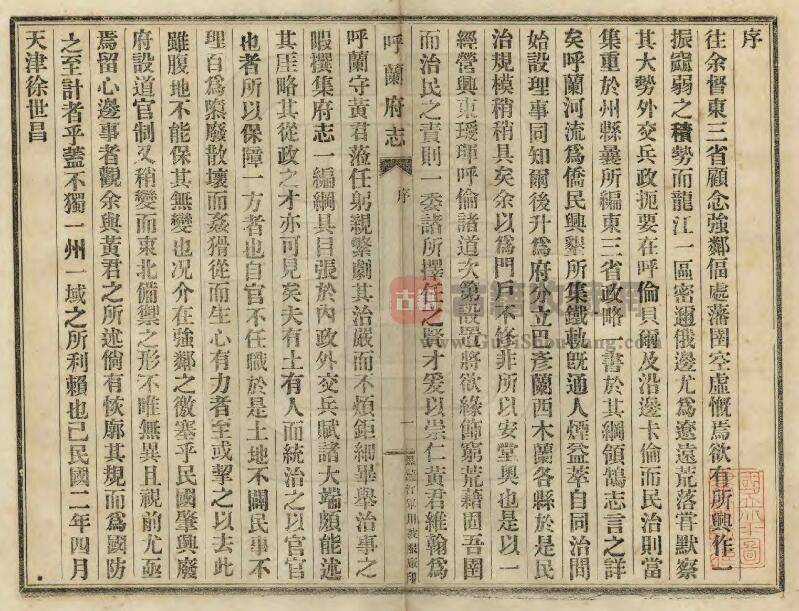 序
往余督東三省顧念強鄰偪處藩圉空虛慨焉欲有所興作一
振窳弱之積勢而龍江一區密邇俄邊尤為遼遠荒落嘗默察
其大勢外交兵政扼要在呼倫貝爾及沿邊卡倫而民治則當
集重於州縣曩所編東三省政略一書於其綱領鵠志言之詳
矣呼蘭河流為僑民興墾所集鐵軌既通人煙益萃自同治間
始設理事同知爾後升為府分立巴彥蘭西木蘭各縣於是民
治規模稍稍具矣余以為門戶不修非所以安堂奧也是以一
經營興東璦琿呼倫諸道次第設置將欲緣飾窮荒藉固吾圉
而治民之責則一委諸所擇任之賢才爰以崇仁黃君維翰為
呼蘭府志
序
一
黑龍江軍用被服廠印
呼蘭守黃君蒞任躬親繁劇其治嚴而不煩鉅細畢舉治事之
暇撰集府志一編綱具目張於內政外交兵賦諸大端頗能述
其厓略其從政之才亦可見矣夫有土有人而統治之以官官
也者所以保障一方者也自官不任職於是土地不闢民事不
理百為隳廢散壞而姦猾從而生心有力者至或挈之以去此
雖腹地不能保其無變也况介在強鄰之徼塞乎民國肇興廢
府設道官制又稍變而東北備禦之形不唯無異且視前尤亟
焉留心邊事者觀余與黃君之所述倘有恢廓其規而為國防
之至計者乎蓋不獨一州一域之所利賴也已民國二年四月
天津徐世昌
古籍